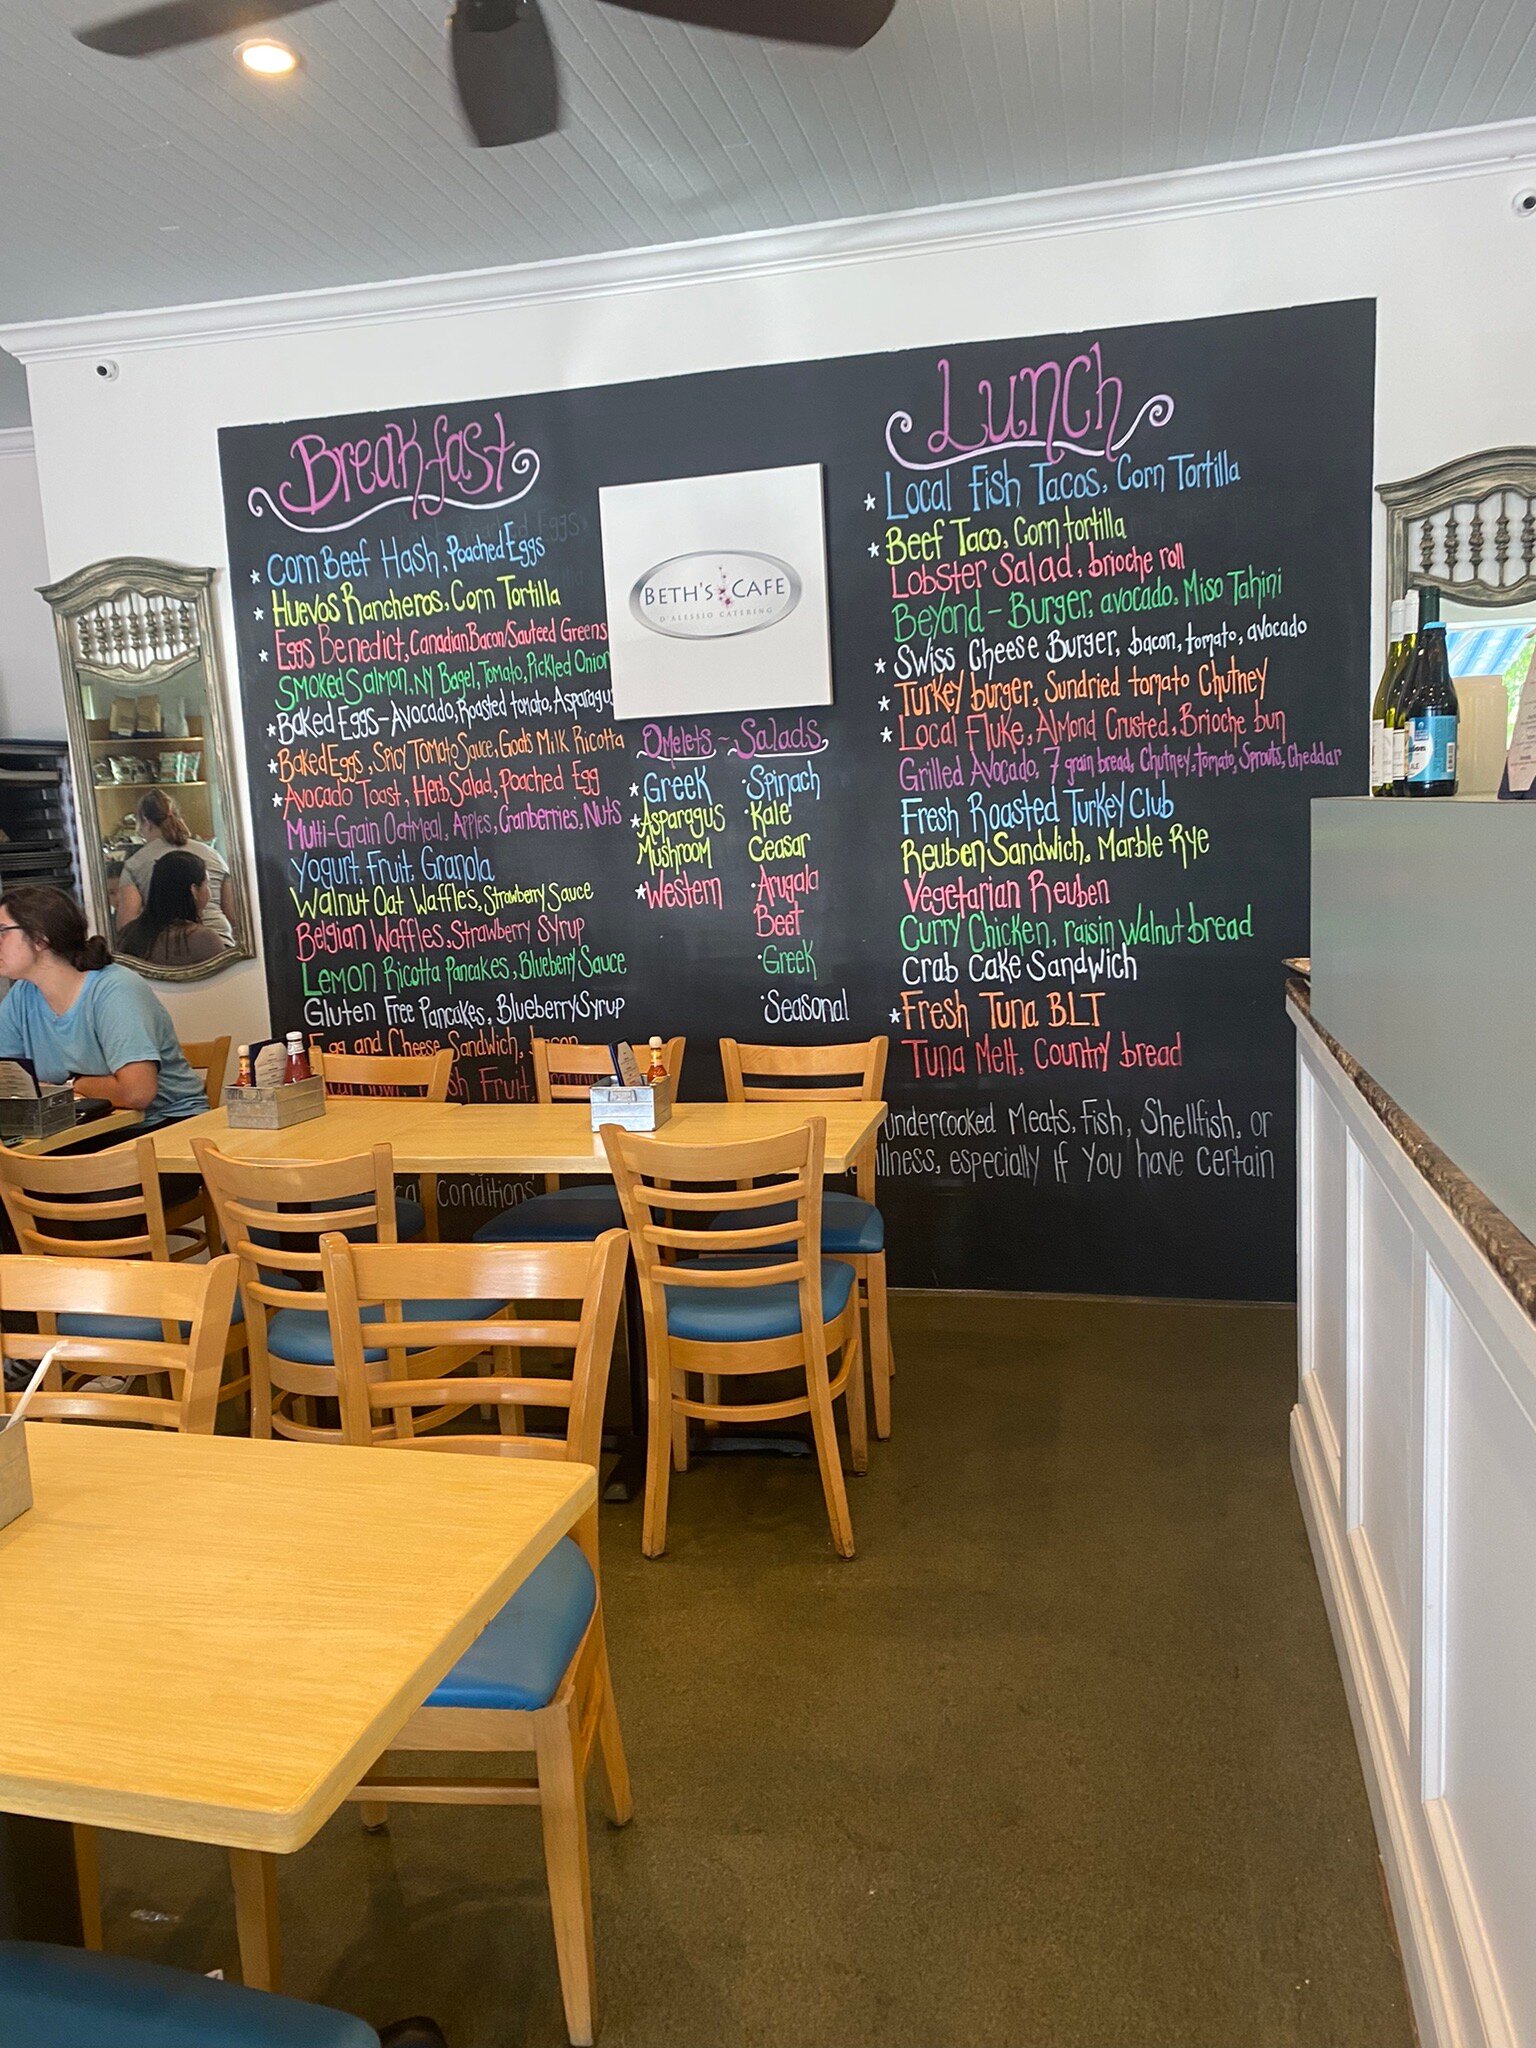 Breakfast
* Corn Beef Hash, Poached Eggs
* Huevos Rancheros, Corn Tortilla
* Eggs Benedict, Canadian Bacon/Sauteed Greens
Smoked Salmon, NY Bagel, Tomato, Pickled Onion
* Baked Eggs - Avocado, Roasted tomato, Asparagus
* Baked Eggs, Spicy Tomato Sauce, Goats Milk Ricotta
* Avocado Toast, Herb Salad, Poached Egg
Multi-Grain Oatmeal, Apples, Cranberries, Nuts
Yogurt, Fruit, Granola
Walnut Oat Waffles, Strawberry Sauce
Belgian Waffles, Strawberry Syrup
Lemon Ricotta Pancakes, Blueberry Sauce
Gluten Free Pancakes, Blueberry Syrup
Egg and Cheese Sandwich,
Fruit,
BETH'S CAFE
D'ALESSIO CATERING
Omelets - Salads
* Greek
* Asparagus
Mushroom
* Western
· Spinach
· Kale
Ceasar
· Arugala
Beet
· Greek
· Seasonal
Lunch
* Local Fish Tacos, Corn Tortilla
* Beef Taco, Corn tortilla
Lobster Salad, brioche roll
Beyond - Burger, avocado, Miso Tahini
* Swiss Cheese Burger, bacon, tomato, avocado
* Turkey burger, Sundried tomato Chutney
* Local Fluke, Almond Crusted, Brioche bun
Grilled Avocado, 7 grain bread, Chutney, tomato, Sprouts, Cheddar
Fresh Roasted Turkey Club
Reuben Sandwich, Marble Rye
Vegetarian Reuben
Curry Chicken, raisin walnut bread
Crab Cake Sandwich
* Fresh Tuna B.L.T
Tuna Melt, Country bread
undercooked Meats, Fish, Shellfish, or
illness, especially if you have certain
Conditions